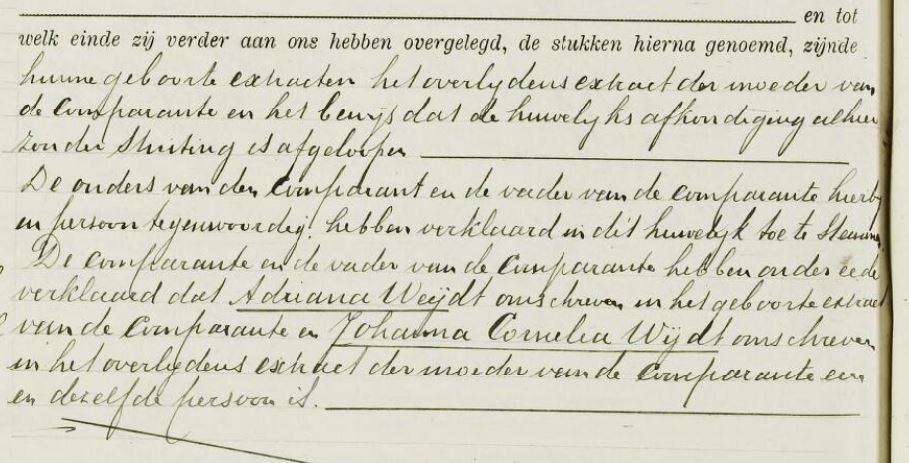 en tot
welk einde zij verder aan ons hebben overgelegd, de stukken hierna genoemd, zijnde
hunne geboorte extracten het overlydens extract der moeder van
de comparante en het bewys dat de huwelyks afkondiging alhier
zonder stuiting is afgeloopen
De ouders van den comparant en de vader van de comparante hierby
in persoon tegenwoordig, hebben verklaard in dit huwelyk toe te stemmen
De comparante en de vader van de comparante hebben onder eede
verklaard dat Adriana Weÿdt omschreven in het geboorte extract
van de comparante en Johanna Cornelia Wÿdt omschreven
in het overlydens extract der moeder van de comparante een
en dezelfde persoon is.